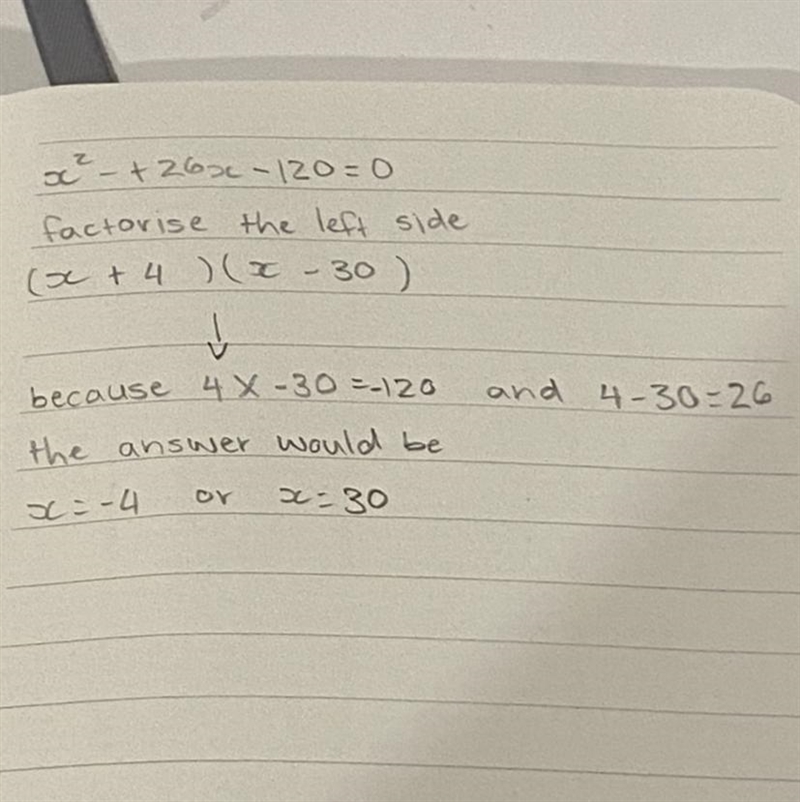 x² - + 26x - 120 = 0
factorise the left side
(x + 4 )(x - 30 )
↓
because 4 X -30 = -120 and 4 - 30 = 26
the answer would be
x = -4 or x = 30